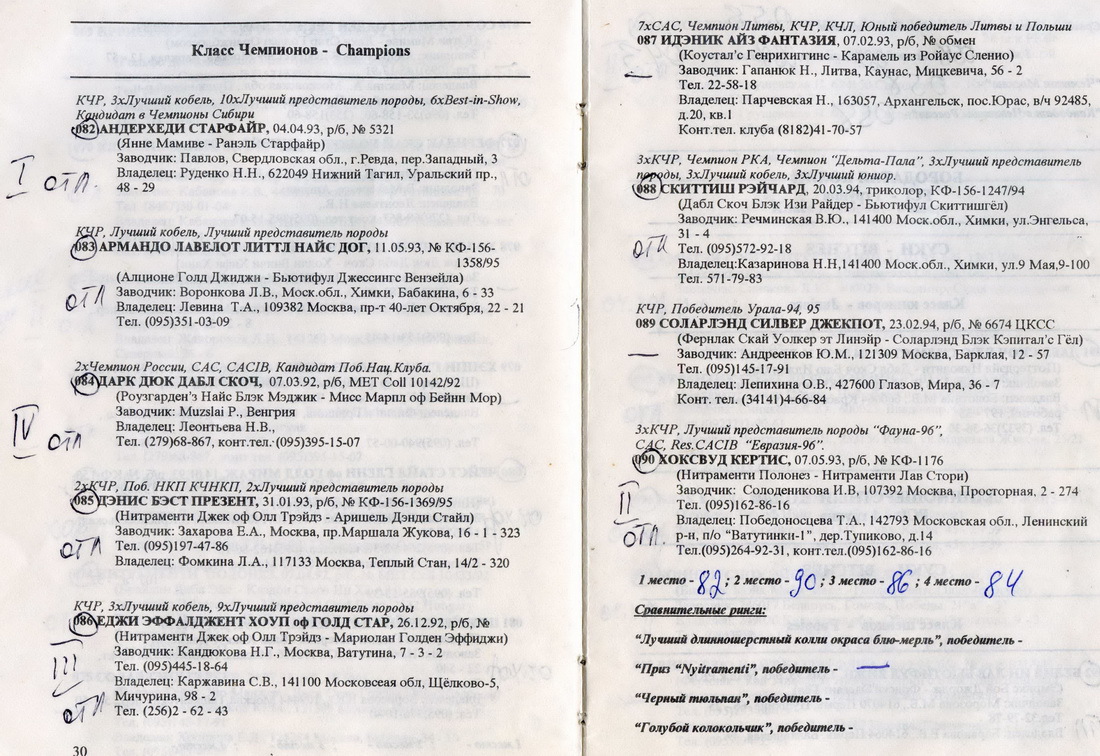 Класс Чемпионов - Champions
КЧР, 3хЛучший кобель, 10хЛучший представитель породы, 6хBest-in-Show,
Кандидат в Чемпионы Сибири
082 АНДЕРХЕДИ СТАРФАЙР, 04.04.93, р/б, № 5321
(Янне Мамиве - Ранэль Старфайр)
Заводчик: Павлов, Свердловская обл., г.Ревда, пер.Западный, 3
I отл.
Владелец: Руденко Н.Н., 622049 Нижний Тагил, Уральский пр.,
48 - 29
КЧР, Лучший кобель, Лучший представитель породы
083 АРМАНДО ЛАВЕЛОТ ЛИТТЛ НАЙС ДОГ, 11.05.93, № КФ-156-
1358/95
(Алционе Голд Джиджи - Бьютифул Джессингс Вензейла)
отл
Заводчик: Воронкова Л.В., Моск.обл., Химки, Бабакина, 6 - 33
Владелец: Левина Т.А., 109382 Москва, пр-т 40-лет Октября, 22 - 21
Тел. (095)351-03-09
2хЧемпион России, САС, CACIB, Кандидат Поб.Нац.Клуба.
084 ДАРК ДЮК ДАБЛ СКОЧ, 07.03.92, р/б, МЕТ Coll 10142/92
(Роузгарден’з Найс Блэк Мэджик - Мисс Марпл оф Бейнн Мор)
Заводчик: Muzslai P., Венгрия
Владелец: Леонтьева Н.В.,
IV отл
Тел. (279)68-867, конт.тел.(095)395-15-07
2хКЧР, Поб. НКП КЧНКП, 2хЛучший представитель породы
085 ДЭНИС БЭСТ ПРЕЗЕНТ, 31.01.93, р/б, № КФ-156-1369/95
(Нитраменти Джек оф Олл Трэйдз - Аришель Дэнди Стайл)
Заводчик: Захарова Е.А., Москва, пр.Маршала Жукова, 16 - 1 - 323
отл
Тел. (095)197-47-86
Владелец: Фомкина Л.А., 117133 Москва, Теплый Стан, 14/2 - 320
КЧР, 3хЛучший кобель, 9хЛучший представитель породы
086 ЕДЖИ ЭФФАЛДЖЕНТ ХОУП оф ГОЛД СТАР, 26.12.92, р/б, №
(Нитраменти Джек оф Олл Трэйдз - Мариолан Голден Эффиджи)
Заводчик: Кандюкова Н.Г., Москва, Ватутина, 7 - 3 - 2
III
Тел. (095)445-18-64
Владелец: Каржавина С.В., 141100 Московсеая обл, Щёлково-5,
Мичурина, 98 - 2
отл
Тел. (256)2 - 62 - 43
30
7хСАС, Чемпион Литвы, КЧР, КЧЛ, Юный победитель Литвы и Польши
087 ИДЭНИК АЙЗ ФАНТАЗИЯ, 07.02.93, р/б, № обмен
(Коустал’с Генрихиггинс - Карамель из Ройаус Сленио)
Заводчик: Гапанюк Н., Литва, Каунас, Мицкевича, 56 - 2
Тел. 22-58-18
Владелец: Парчевская Н., 163057, Архангельск, пос.Юрас, в/ч 92485,
д.20, кв.1
Конт.тел. клуба (8182)41-70-57
3хКЧР, Чемпион РКА, Чемпион “Дельта-Пала”, 3хЛучший представитель
породы, 3хЛучший кобель, 3хЛучший юниор.
088 СКИТТИШ РЭЙЧАРД, 20.03.94, триколор, КФ-156-1247/94
(Дабл Скоч Блэк Изи Райдер - Бьютифул Скиттишгёл)
Заводчик: Речминская В.Ю., 141400 Моск.обл., Химки, ул.Энгельса,
31 - 4
отл
Тел. (095)572-92-18
Владелец:Казаринова Н.Н,141400 Моск.обл., Химки, ул.9 Мая,9-100
Тел. 571-79-83
КЧР, Победитель Урала-94, 95
089 СОЛАРЛЭНД СИЛВЕР ДЖЕКПОТ, 23.02.94, р/б, № 6674 ЦКСС
(Фернлак Скай Уолкер эт Линэйр - Соларлэнд Блэк Кэпитал’с Гёл)
Заводчик: Андреенков Ю.М., 121309 Москва, Барклая, 12 - 57
Тел. (095)145-17-91
Владелец: Лепихина О.В., 427600 Глазов, Мира, 36 - 7
Конт. тел. (34141)4-66-84
3хКЧР, Лучший представитель породы “Фауна-96”.
САС, Res.CACIB “Евразия-96”.
090 ХОКСВУД КЕРТИС, 07.05.93, р/б, № КФ-1176
(Нитраменти Полонез - Нитраменти Лав Стори)
Заводчик: Солоденикова И.В, 107392 Москва, Просторная, 2 - 274
II
Тел. (095)162-86-16
Владелец: Победоносцева Т.А., 142793 Московской обл., Ленинский
отл.
р-н, п/о “Ватутинки-1”, дер.Тупиково, д.14
Тел.(095)264-92-31, конт.тел.(095)162-86-16
1 место - 82 ; 2 место - 90 ; 3 место - 86 ; 4 место - 84
Сравнительные ринги:
“Лучший длинношерстный колли окраса блю-мерль”, победитель -
“Приз “Nyitramenti”, победитель -
“Черный тюльпан”, победитель -
“Голубой колокольчик”, победитель -